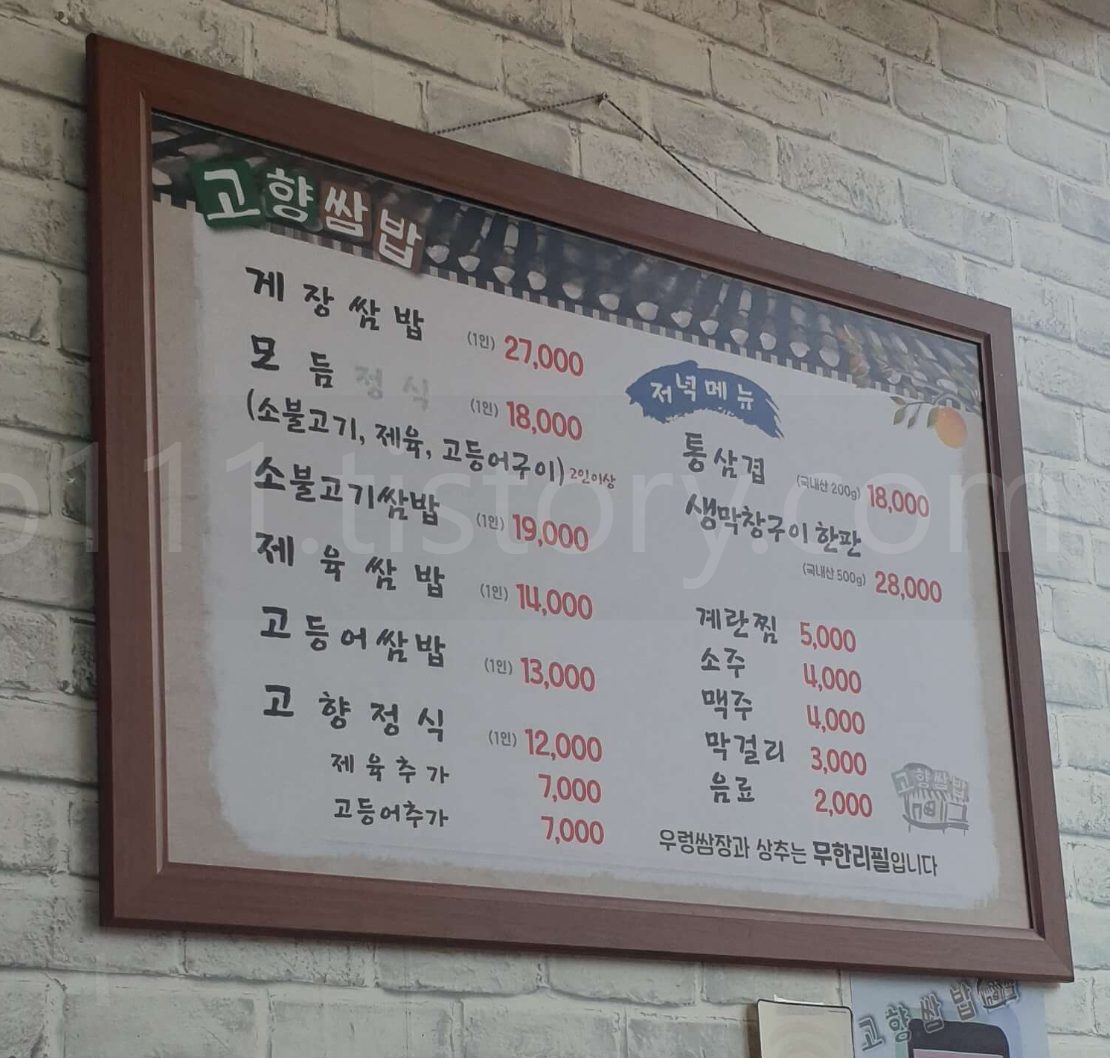 고향쌈밥
게장쌈밥 (1인) 27,000
모듬정식 (1인) 18,000
(소불고기, 제육, 고등어구이) 2인이상
소불고기쌈밥 (1인) 19,000
제육쌈밥 (1인) 14,000
고등어쌈밥 (1인) 13,000
고향정식 (1인) 12,000
제육추가 7,000
고등어추가 7,000
저녁메뉴
통삼겹 (국내산 200g) 18,000
생막창구이 한판
(국내산 500g) 28,000
계란찜 5,000
소주 4,000
맥주 4,000
막걸리 3,000
음료 2,000
고향쌈밥
우렁쌈장과 상추는 무한리필입니다
고향쌈밥
111.tistory.com